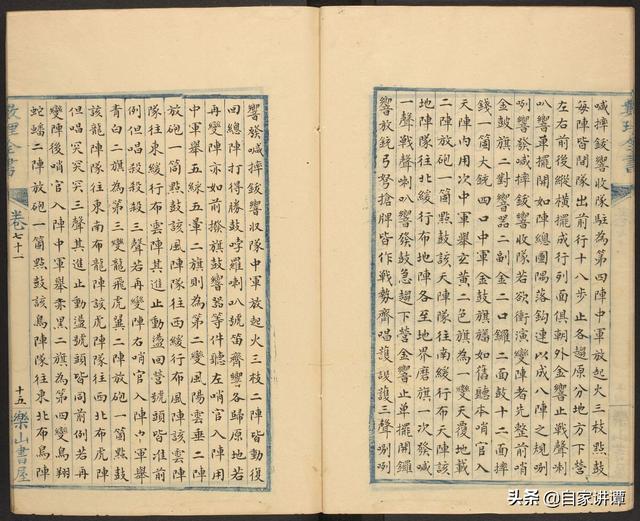 喊摔鈸響收隊駐為第四陣中軍放起火三枝點鼓
每陣皆開隊出前行十八步止各趨原分地方下營
左右前後縱橫擺成行列面俱朝外金響止戰聲喇
叭響单擺開如陣總圍隅落鈎連以成八陣之規喇
咧響發喊摔鈸響收隊若欲衝演變陣者先整前哨
金鼓旗二對響器二副金二口鑼二面鼓十二面摔
錢一箇大銃四口中軍金鼓旗旛如舊聽本哨官入
天陣內用次中軍舉玄黃二色旗為一變天覆地載
二陣放砲一箇點鼓該天陣隊往南緩行布天陣該
地陣隊往北緩行布地陣各至地界磨旗一次發喊
一聲戰聲喇叭響發鼓急趨下營金響止单擺開鑼
響放銃弓弩搶牌皆作戰勢齊唱護護護三聲喇咧
響發喊摔鈸響收隊中軍放起火三枝二陣皆動復
回總陣打得勝鼓哱囉喇叭號笛齊響各歸原地若
再變陣亦如前撥旗鼓響器等件聽左哨官入陣用
中軍舉五綵五暈二旗則為第二變風陽雲垂二陣
放砲一箇點鼓該風陣隊往西緩行布風陣該雲陣
隊往東緩行布雲陣其進止動盪回營號頭皆准前
例但唱殺殺殺三聲若再變陣右哨官入陣內軍舉
青白二旗為第三變龍飛虎翼二陣放砲一箇點鼓
該龍陣隊往東南布龍陣該虎陣隊往西北布虎陣
但唱哭哭哭三聲其進止動盪號頭皆同前例若再
變陣後哨官入陣中軍舉赤黑二旗為第四變鳥翔
蛇蟠二陣放砲一箇點鼓該鳥陣隊往東北布鳥陣
數理全書
卷七十一
十五
樂山書屋
头条 @自家讲谭